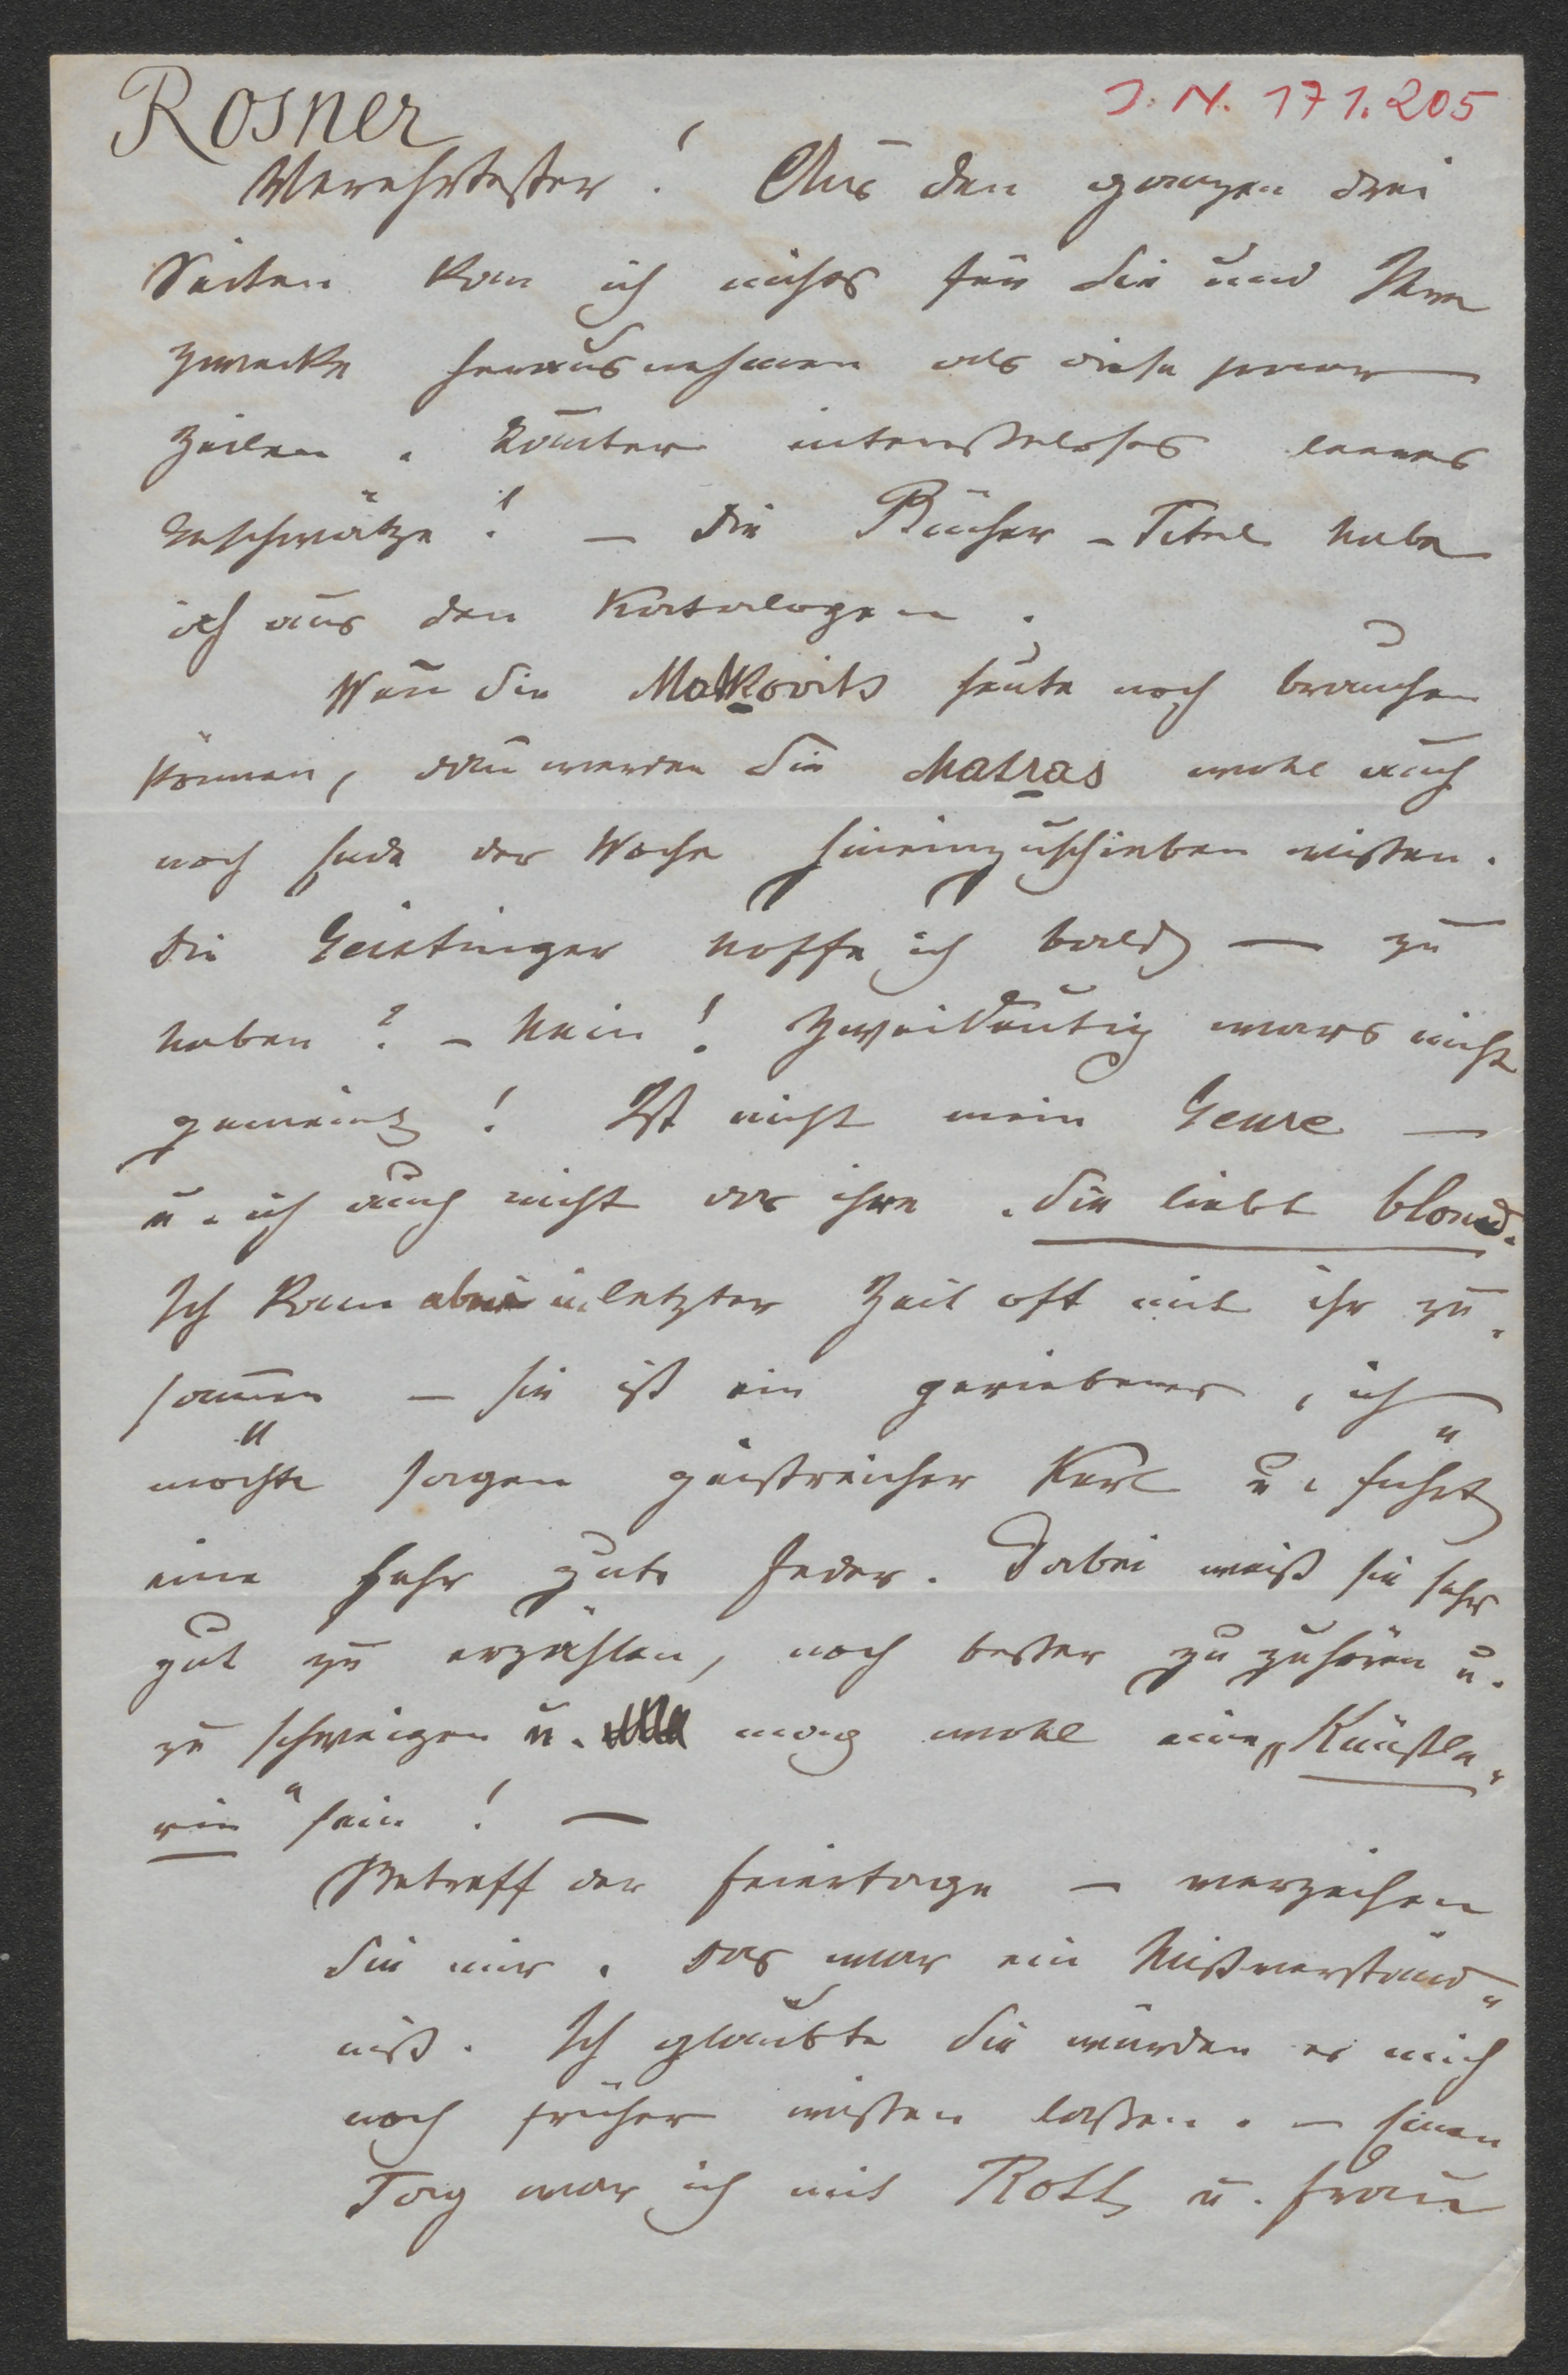 Rosner
J. N. 171.205
Verehrtester! Aus den ganzen drei
Seiten kan ich nichts für Sie und Ihre
Zwecke herausnehmen als diese paar
Zeilen. lauter interesseloses leeres
Geschwätze! — Die Bücher-Titel habe
ich aus den Katalogen.
Wen̄ Sie Matkovits heute noch brauchen
können, dan̄ werden Sie Matras wohl auch
noch Ende der Woche hineinzuschieben wissen.
Die Geistinger hoffe ich bald — zu
haben? – Nein! Zweideutig wars nicht
gemeint! Ist nicht mein Genre —
u. ich auch nicht das ihre. Sie liebt blond.
Ich kam aber in letzter Zeit oft mit ihr zu-
sam̄en — sie ist ein geriebener, ich
möchte sagen geistreicher Kerl u. führt
eine sehr gute Feder. Dabei weiß sie sehr
gut zu erzählen, noch besser zuzuhören u.
zu schweigen u. mag wohl eine „Künstle-
rin" sein! —
Betreff der Feiertage — verzeihen
Sie mir. Das war ein Mißverständ-
niß. Ich glaubte Sie würden es mich
noch früher wissen lassen. — Einen
Tag war ich mit Rott u. Frau